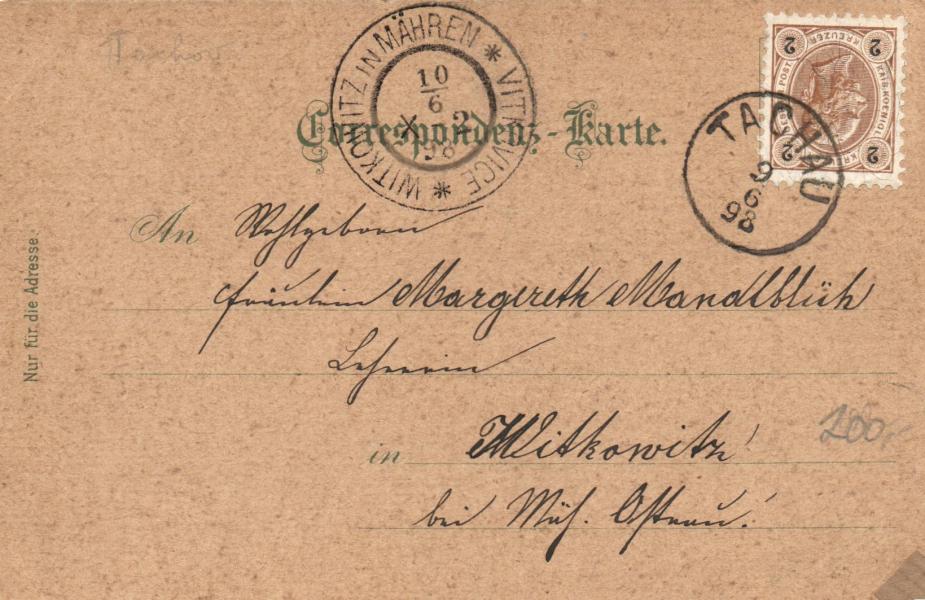 Tachov
WITKOWITZ IN MÄHREN * VITKOVICE *
10
6
X 2
98
Correspondenz-Karte.
TACHAU
9
6
98
2 2
KREUZER
2 2
An Wohlgeboren
Fräulein Margereth Mandlblüh
Lehrerin
in Witkowitz
bei Mäh. Ostrau!
Nur für die Adresse.
200,-